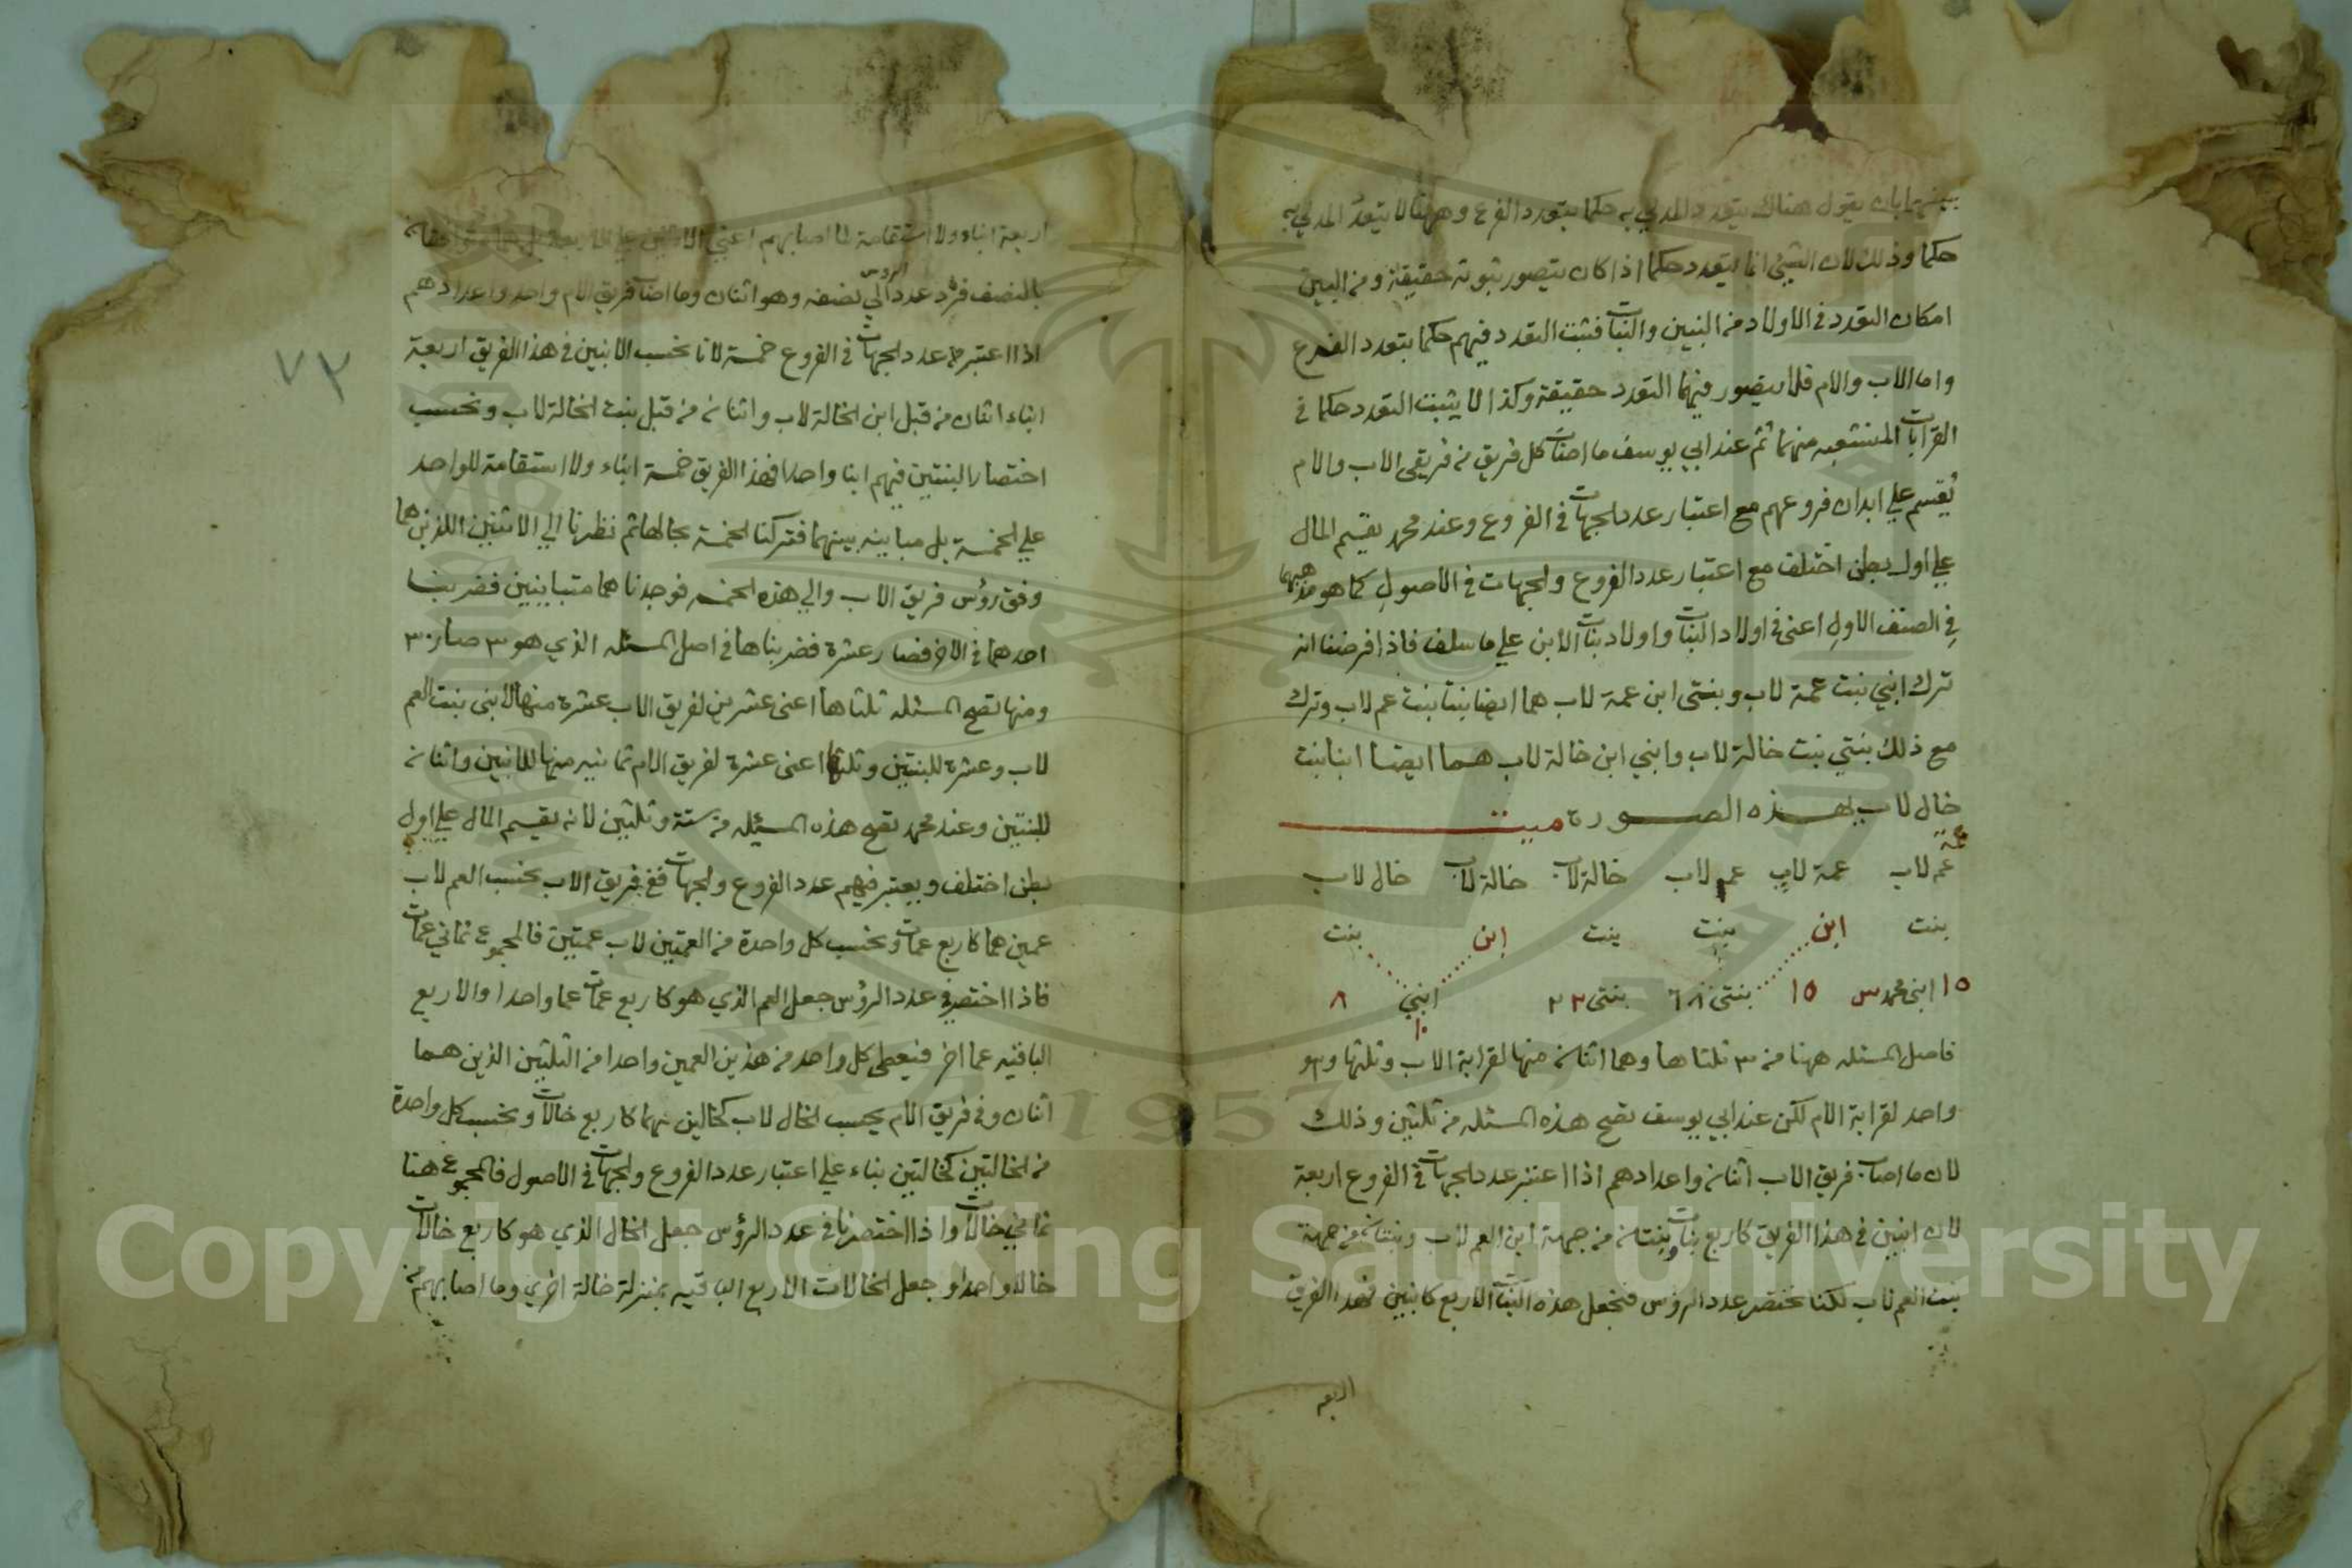 بينهما بان يقول هناك يتعدد المدلي به حكما بتعدد الفرع وههنا لا يتعدد المدلي به
حكما وذلك لان الشيئ انما يتعدد حكما اذا كان يتصور ثبوته حقيقة ومن البين
امكان التعدد في الاولاد من البنين والبنات فثبت التعدد فيهم حكما بتعدد الفرع
واما الاب والام فلا يتصور فيهما التعدد حقيقة وكذا لا يثبت التعدد حكما في
القرابات المنشعبه منهما ثم عند ابي يوسف ما اصاب كل فريق من فريقى الاب والام
يقسم علي ابدان فروعهم مع اعتبار عدد الجهات في الفروع وعند محمد يقسم المال
علي اول بطن اختلف مع اعتبار عدد الفروع والجهات في الاصول كما هو مذهبهما
في الصنف الاول اعنى في اولاد البنات واولاد بنات الابن علي ما سلف فاذا فرضنا انه
ترك ابني بنت عمة لاب وبنتى ابن عمة لاب هما ايضا بنتا بنت عم لاب وترك
مع ذلك بنتي بنت خالة لاب وابني ابن خالة لاب هما ايضا ابنا بنت
خال لاب بهذه الصورة ميت
عمة
عم لاب عمة لاب عم لاب خالة لاب خالة لاب خال لاب
بنت ابن بنت بنت ابن بنت
١٥ ابنى محمد س ١٥ بنتى ٦٨ بنتى ٢٢ ابني ٨
١٠
فاصل المسئله ههنا من ٣ ثلثاها وهما اثنان منها لقرابة الاب وثلثها وهو
واحد لقرابة الام لكن عند ابي يوسف تصح هذه المسئله من ثلثين وذلك
لان ما اصاب فريق الاب اثنان واعدادهم اذا اعتبر عدد الجهات في الفروع اربعة
لان ابنين في هذا الفريق كاربع بنات وبنتان من جهة ابن العم لاب وبنتان من جهة
بنت العم لاب لكنا نختصر عدد الرؤس فنجعل هذه البنات الاربع كابنين فهذا الفريق
اربعه
٧٢
اربعة ابناء ولا استقامة لما اصابهم اعني الاثنين علي الاربعة بل بينهما توافقا
بالنصف فرد عدد الروس الي نصفه وهو اثنان وما اصاب فريق الام واحد واعدادهم
اذا اعتبر عدد الجهات في الفروع خمسة لانا نحسب الابنين في هذا الفريق اربعة
ابناء اثنان من قبل ابن الخالة لاب واثنان من قبل بنت الخالة لاب ونحسب
اختصارا البنتين فيهم ابنا واحدا فهذا الفريق خمسة ابناء ولا استقامة للواحد
علي الخمسة بل مباينه بينهما فتركنا الخمسة بحالها ثم نظرنا الي الاثنين اللذين هما
وفق رؤس فريق الاب والي هذه الخمسه فوجدناهما متباينين فضربنا
احدهما في الاخر فصار عشرة فضربناها في اصل المسئله الذي هو ٣ صار ٣٠
ومنها تصح المسئله ثلثاها اعنى عشرين لفريق الاب عشرة منها لابنى بنت العم
لاب وعشرة للبنتين وثلثها اعنى عشرة لفريق الام ثمانيه منها للابنين واثنان
للبنتين وعند محمد تصح هذه المسئله من ستة وثلثين لانه يقسم المال علي اول
بطن اختلف ويعتبر فيهم عدد الفروع والجهات ففي فريق الاب نحسب العم لاب
عمين هما كاربع عمات ونحسب كل واحدة من العمتين لاب عمتين فالمجموع ثماني عمات
فاذا اختصر في عدد الرؤس جعل العم الذي هو كاربع عمات عما واحدا والاربع
الباقيه عما اخر فيعطى كل واحد من هذين العمين واحدا من الثلثين الذين هما
اثنان وفي فريق الام يحسب الخال لاب كخالين هما كاربع خالات ونحسب كل واحدة
من الخالتين كخالتين بناء علي اعتبار عدد الفروع والجهات في الاصول فالمجموع هنا
ثماني خالات واذا اختصرنا في عدد الرؤس جعل الخال الذي هو كاربع خالات
خالا واحدا وجعل الخالات الاربع الباقيه بمنزلة خالة اخري وما اصابهم من
Copyright © King Saud University
1957